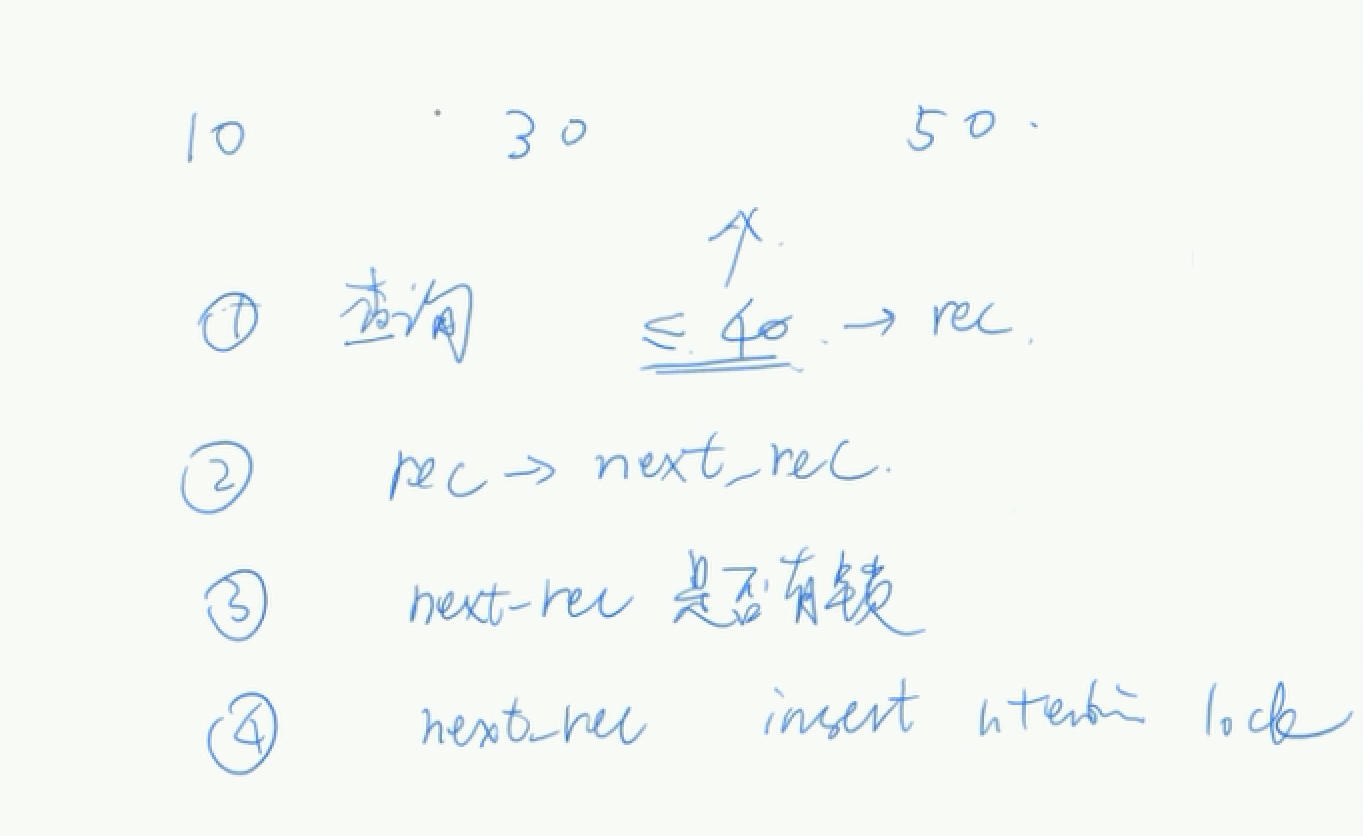 10 30 50.
① 查询 ≤ 40 → rec.
② rec → next_rec.
③ next-rec 是否有锁
④ next_rec insert intention lock